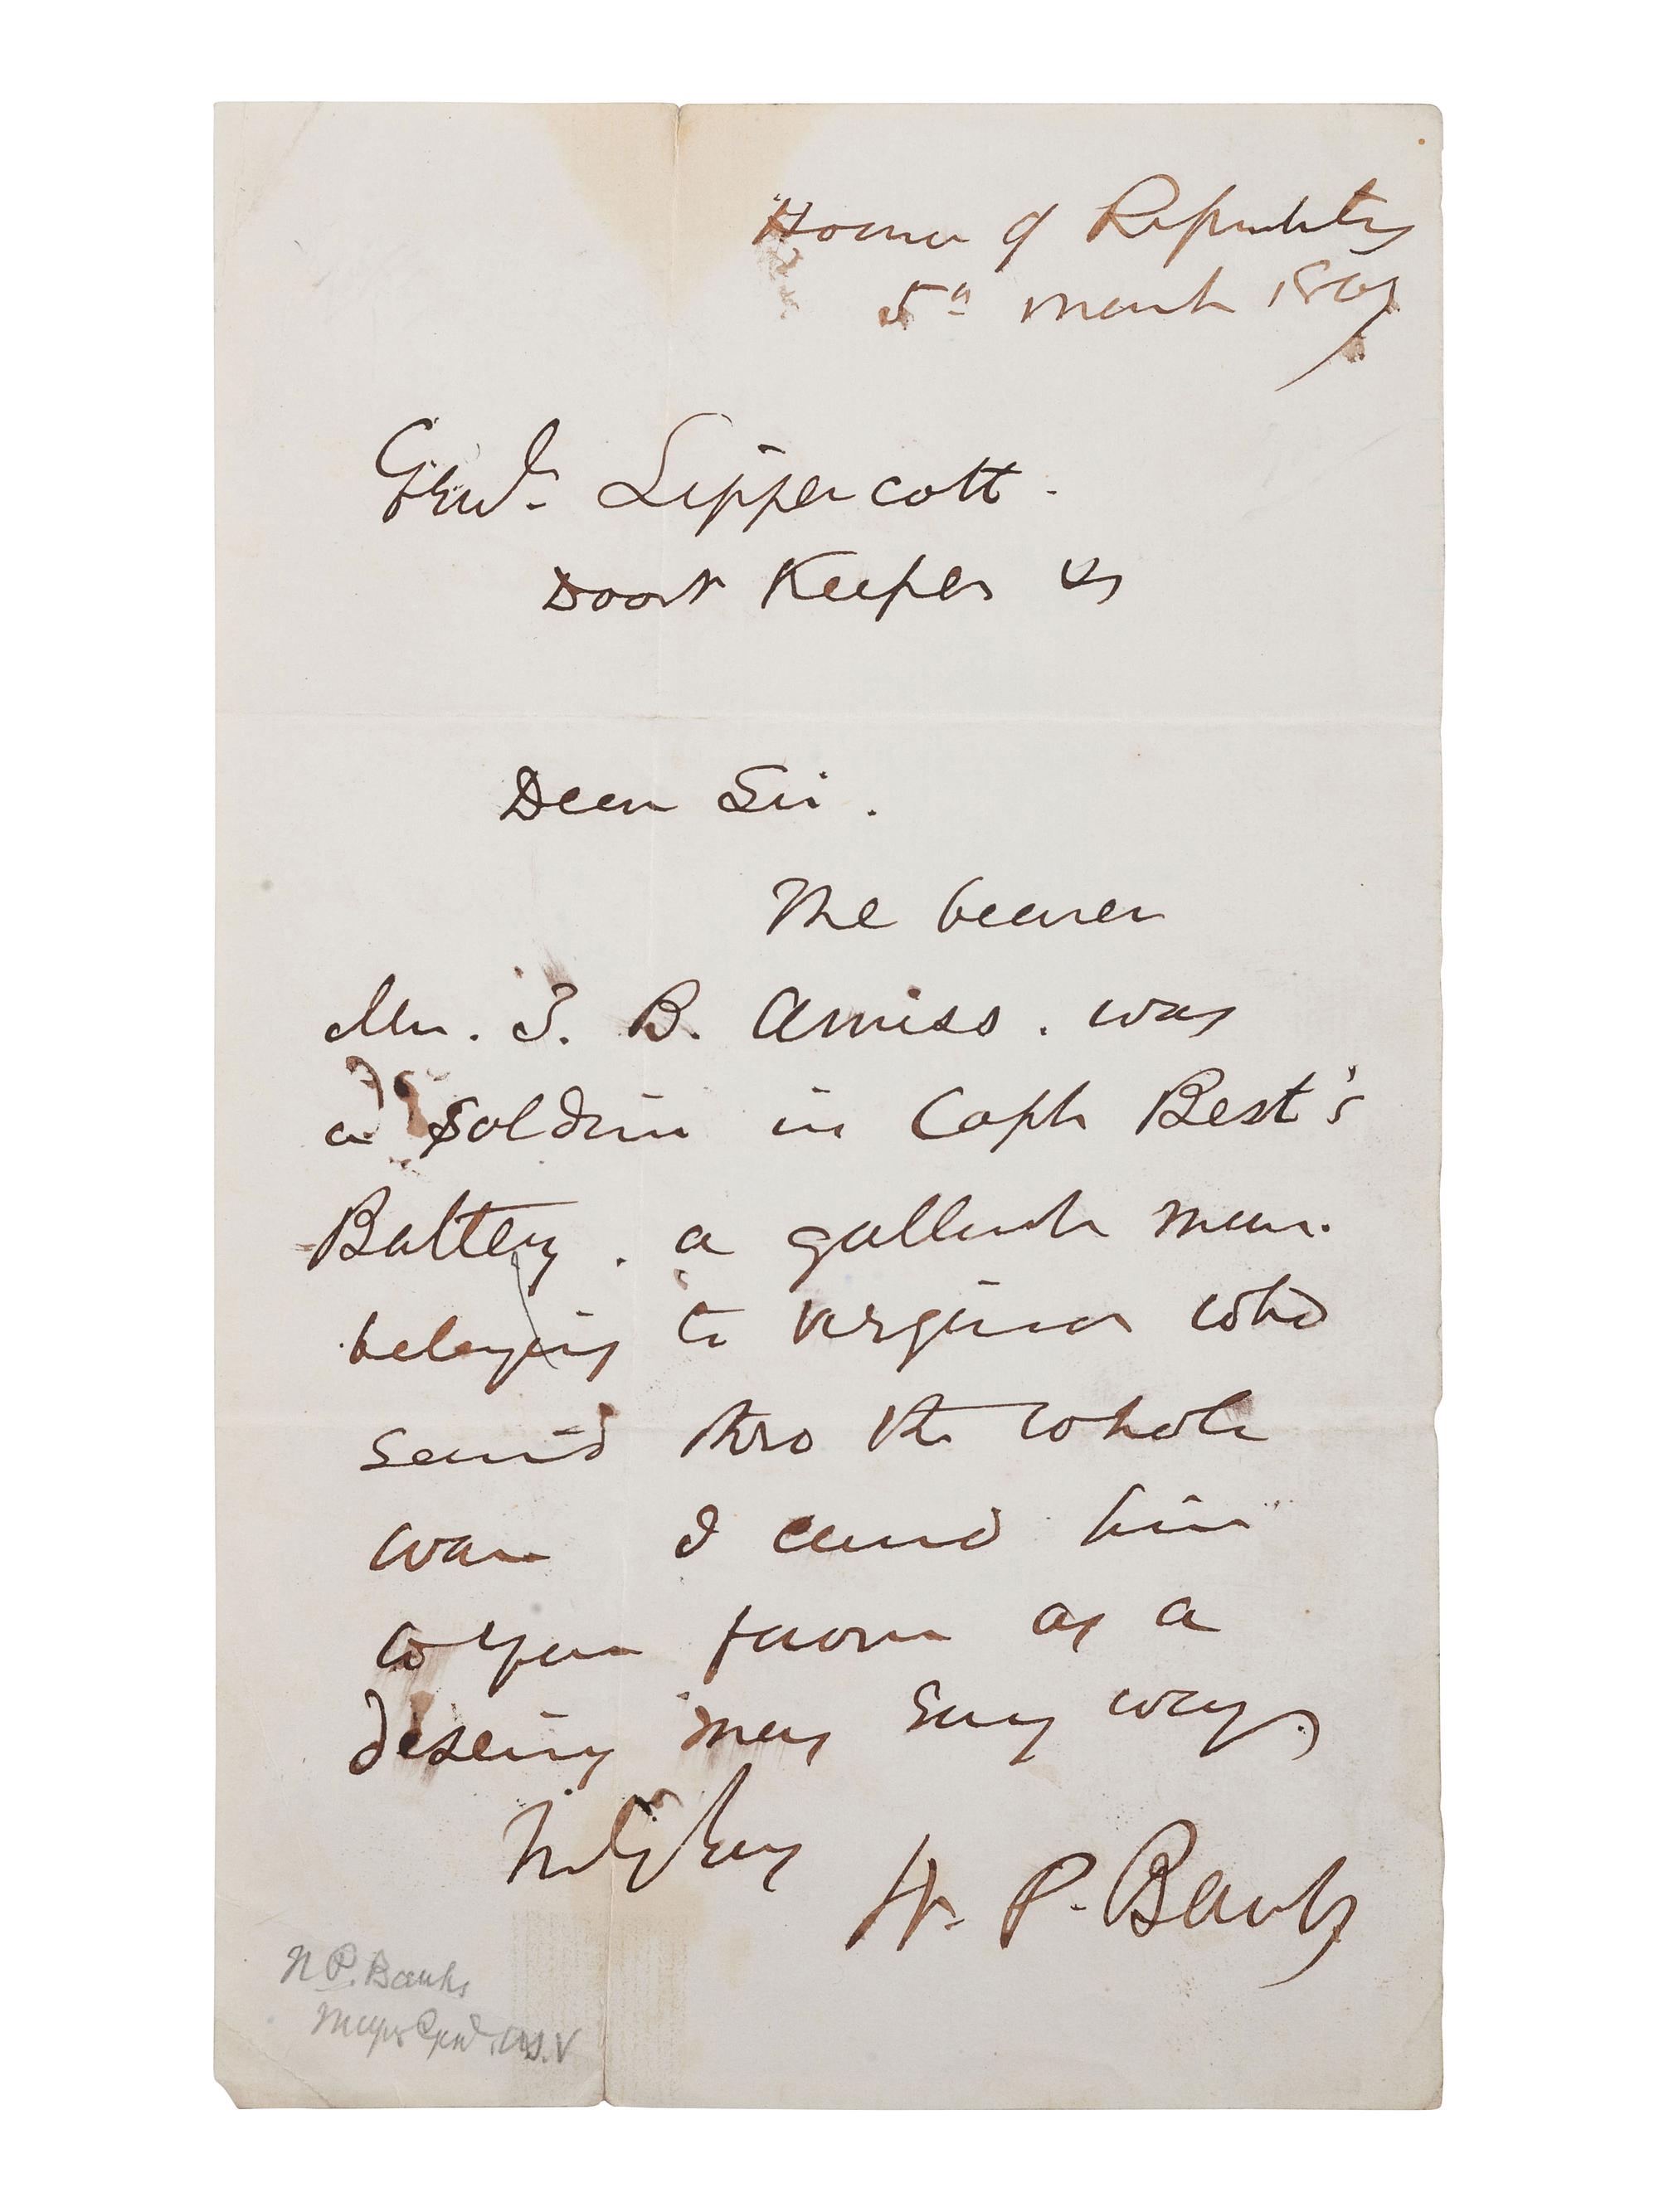 House of Representatives
5th March 1867
Genl. Lippercott.
Door Keeper &c
Dear Sir.
The bearer
Mr. J. B. Amiss. was
a Soldier in Capt Best's
Battery. a gallant man.
belonging to Virginia who
served thro the whole
war I commend him
to your favor as a
deserving man
H. P. Banks
N P. Banks
Major Genl. U.S.V